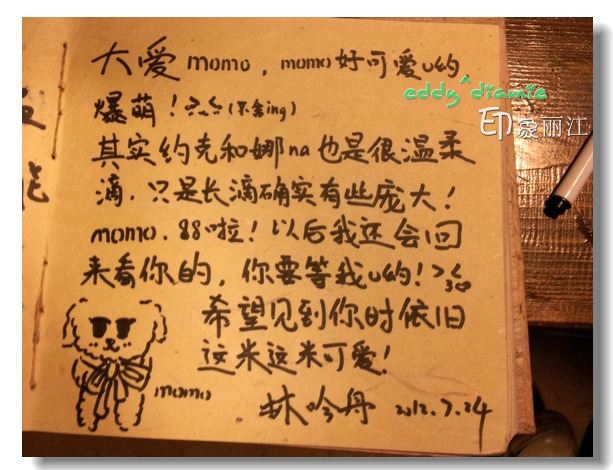 大爱momo，momo好可爱u的
爆萌！(不舍ing)
其实约克和娜na也是很温柔
滴，只是长滴确实有些庞大！
momo，88啦！以后我还会回
来看你的，你要等我u的！>3<
希望见到你时依旧
这米这米可爱！
momo
林吟丹 2012.7.24
eddy^diamie
印象丽江
能